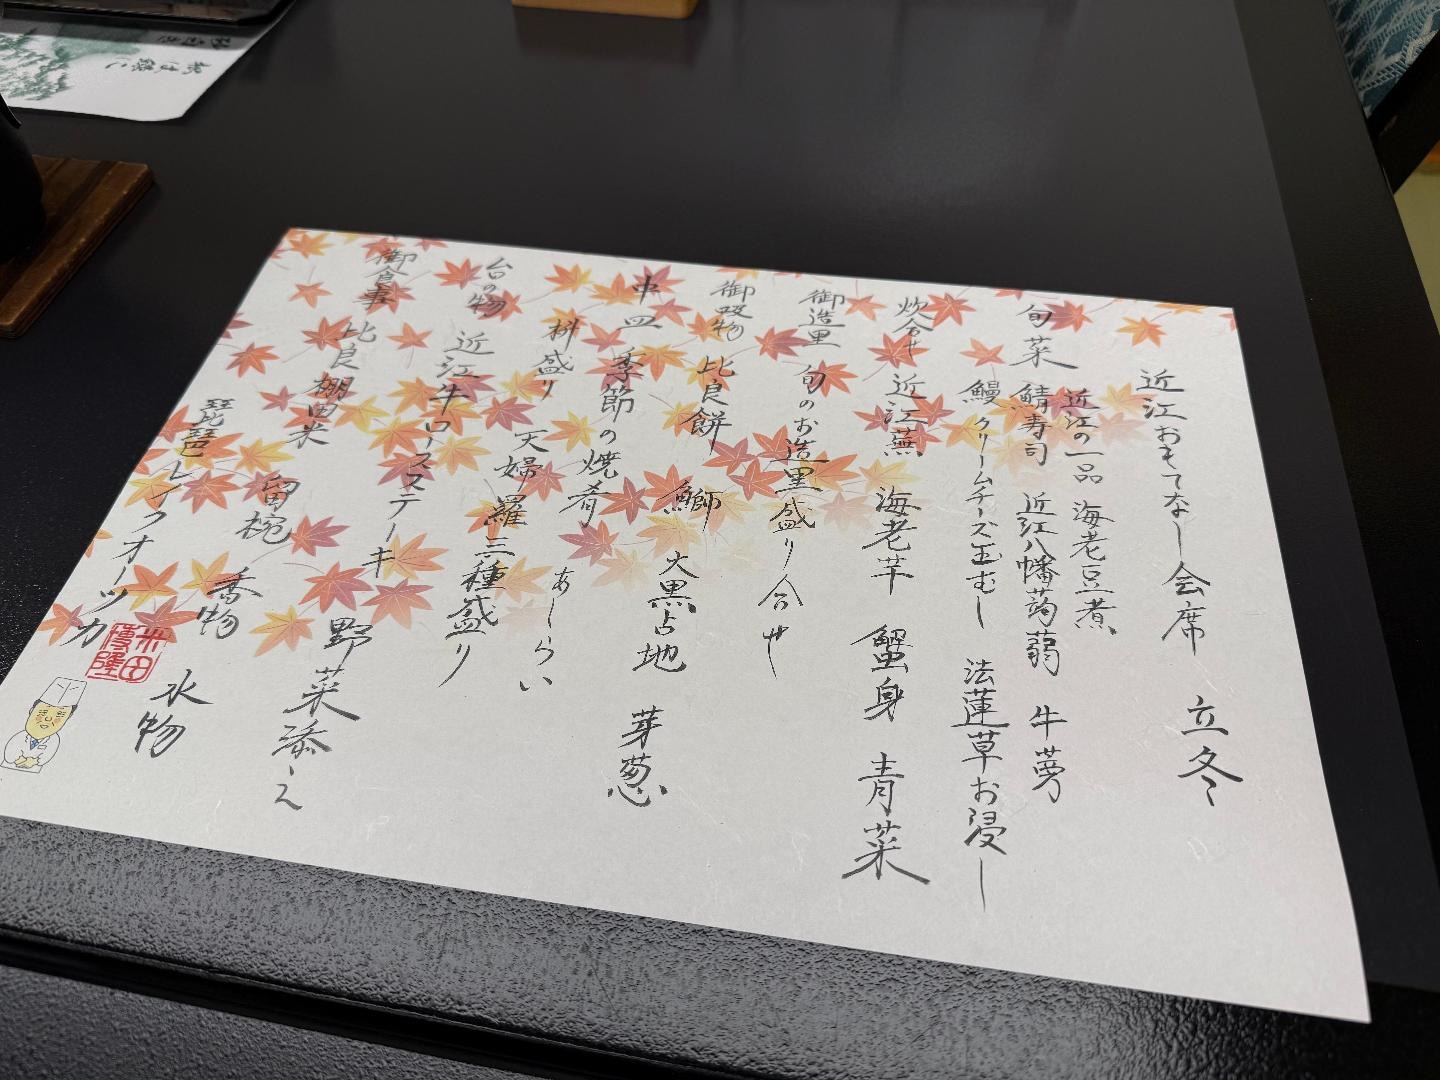 近江おもてなし会席 立冬
旬菜 近江の一品 海老豆煮
鯖寿司 近江八幡蒟蒻 牛蒡
鰻クリームチーズ玉むし 法蓮草お浸し
炊合せ 近江蕪 海老芋 蟹身 青菜
御造里 旬のお造里盛り合せ
御吸物 比良餅 鰤 大黒占地 芽葱
中皿 季節の焼肴 あしらい
桝盛り 天婦羅三種盛り
台の物 近江牛ロースステーキ 野菜添え
御食事 比良棚田米 留椀 香物 水物
琵琶レイクオーツカ
米田
博隆